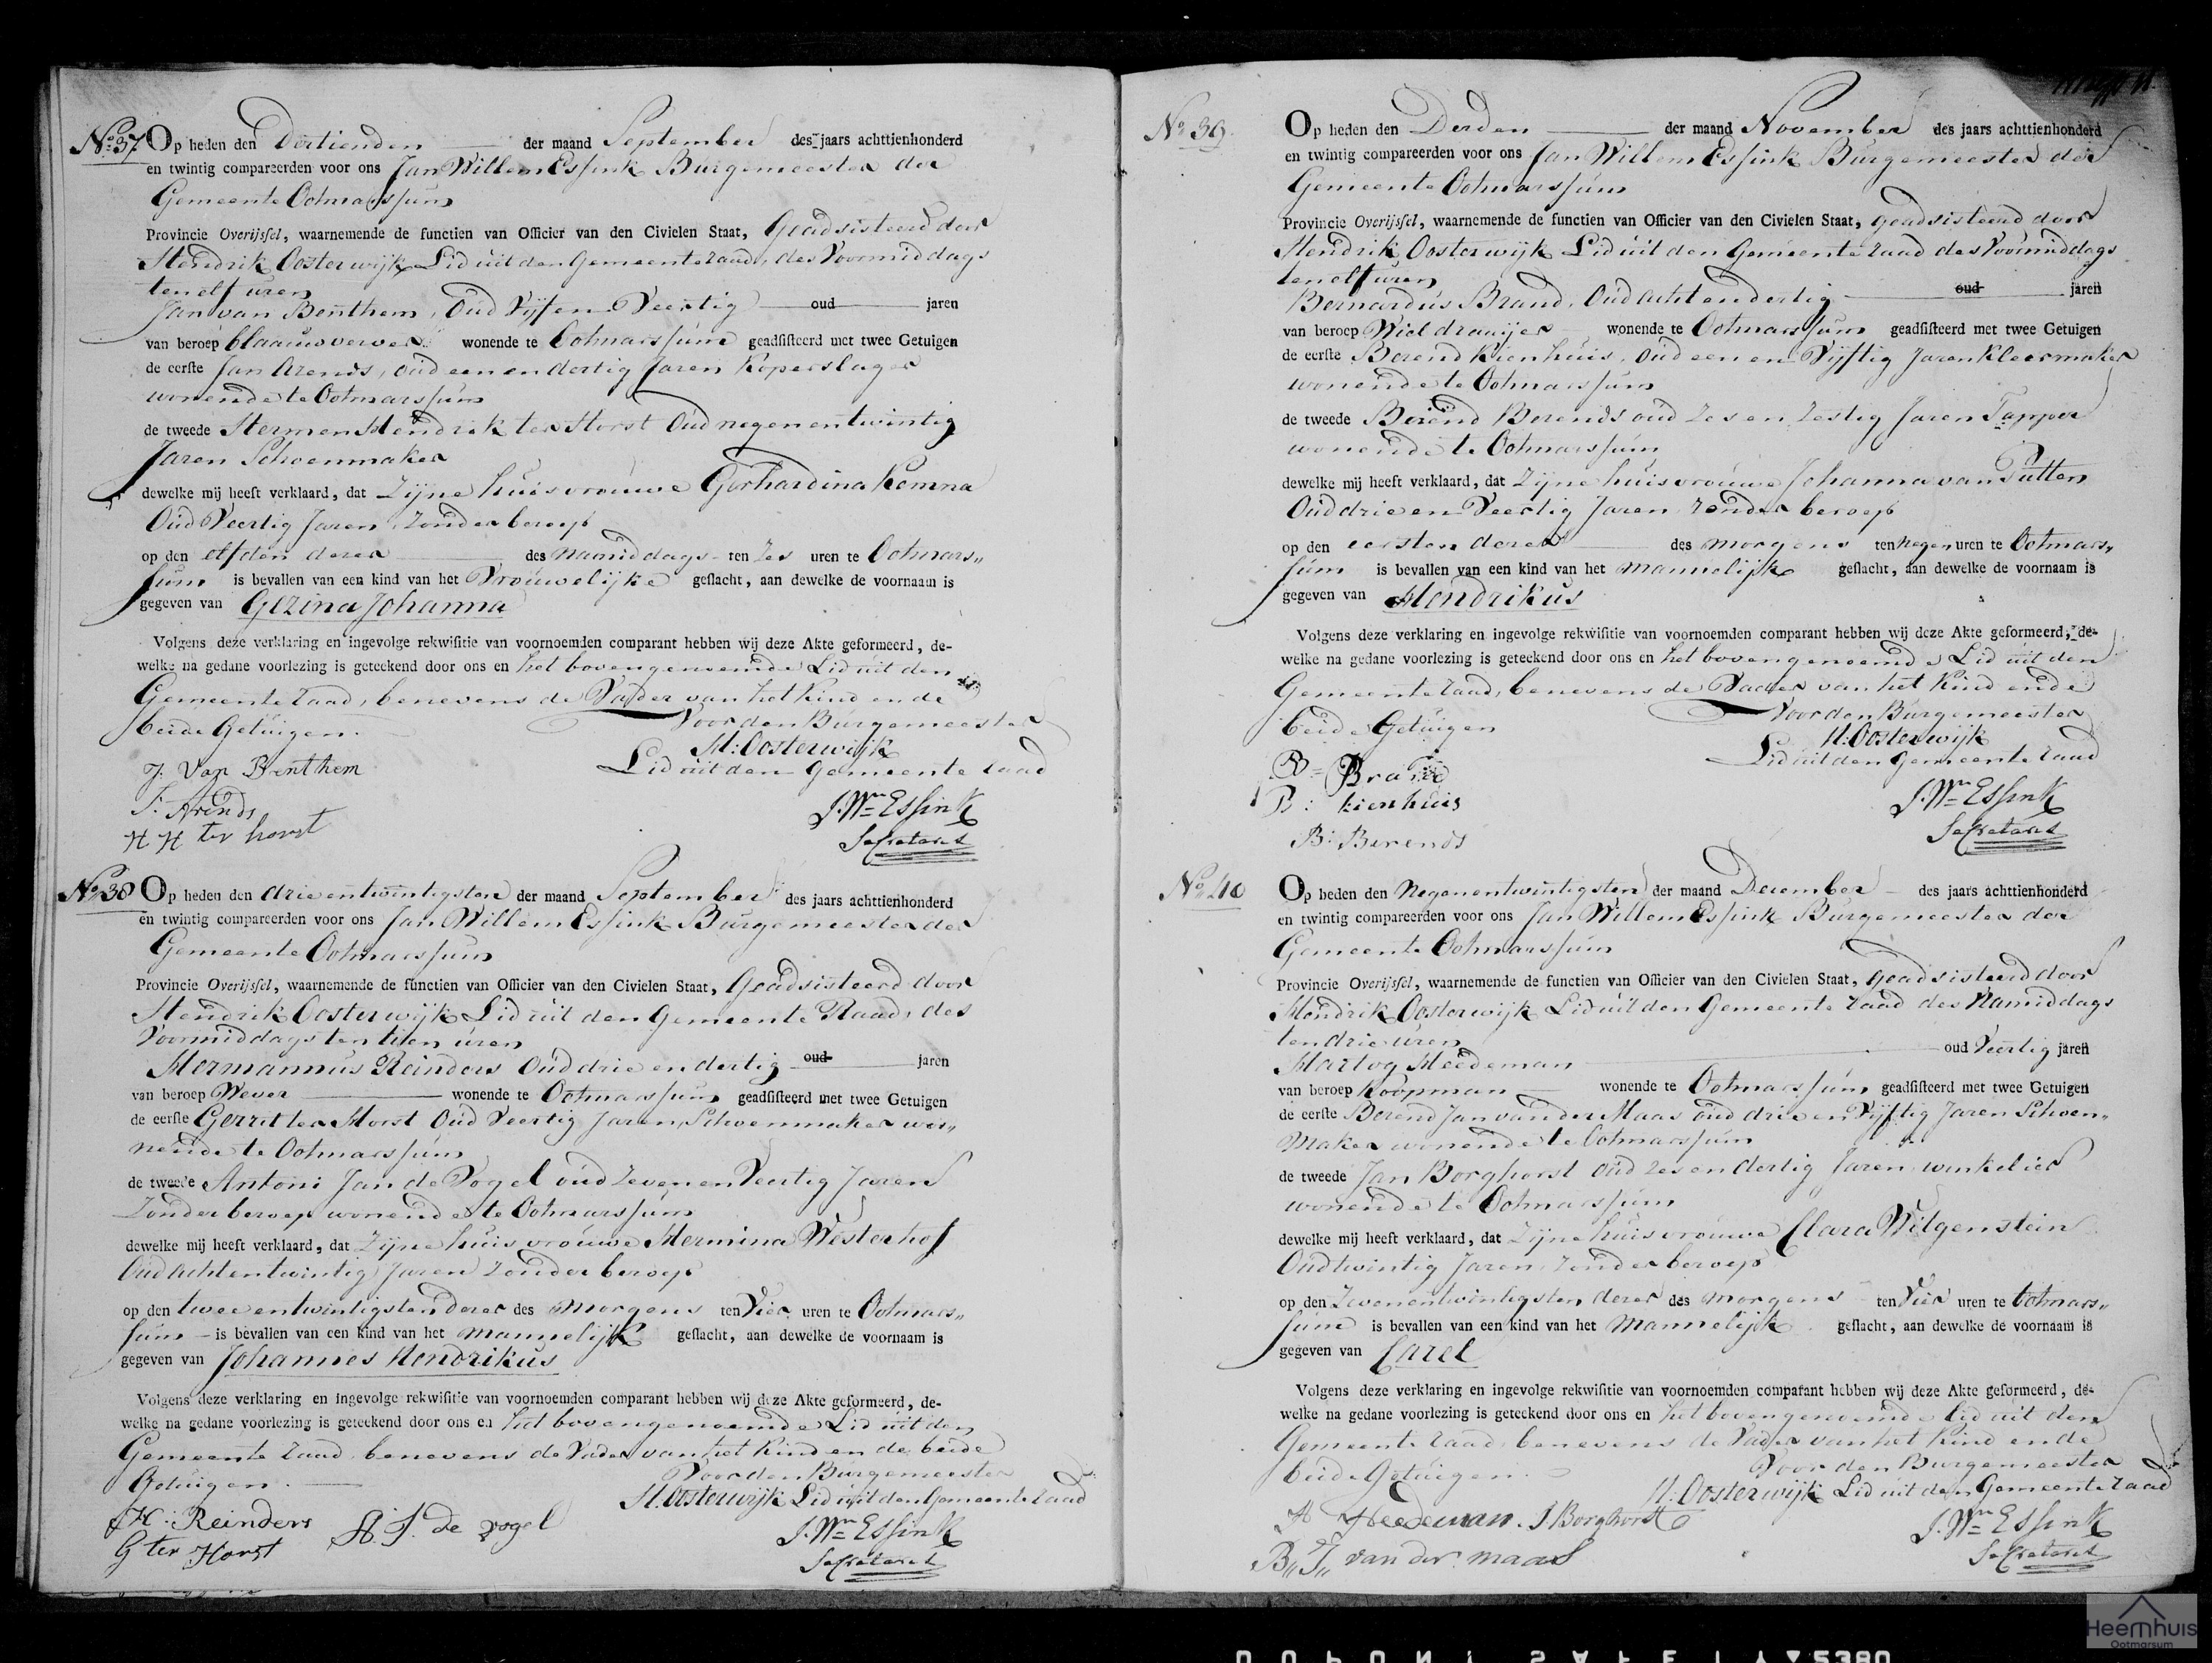 No. 37 Op heden den Dertienden der maand September des jaars achttienhonderd
en twintig compareerden voor ons Jan Willem Essink Burgemeester der
Gemeente Ootmarssum
Provincie Overijssel, waarnemende de functien van Officier van den Civielen Staat, Geadsisteerd door
Hendrik Oosterwijk Lid uit den Gemeente raad, des Voormiddags
ten elf uren
Jan van Benthem, Oud Vyf en Veertig oud jaren
van beroep blaauwverver wonende te Ootmarssum geadsisteerd met twee Getuigen
de eerste Jan Arends, oud een en dertig Jaren Koperslager
wonende te Ootmarssum
de tweede Hermen Hendrik ter Horst Oud negen en twintig
Jaren Schoenmaker
dewelke mij heeft verklaard, dat Zijne huisvrouwe Gerhardina Kemna
Oud Veertig Jaren, Zonder beroep
op den elfden dezer des namiddags ten Zes uren te Ootmars„
sum is bevallen van een kind van het Vrouwelijke geslacht, aan dewelke de voornaam is
gegeven van Gezina Johanna
Volgens deze verklaring en ingevolge rekwisitie van voornoemden comparant hebben wij deze Akte geformeerd, de-
welke na gedane voorlezing is geteekend door ons en het bovengenoemde Lid uit den
Gemeente raad, benevens de Vader van het Kind en de
beide Getuigen.
Voor den Burgemeester
H: Oosterwijk
Lid uit den Gemeente raad
J: Van Benthem
J: Arends
H H ter horst
J. Wm Essink
Secretaris
No. 38 Op heden den drie en twintigsten der maand September des jaars achttienhonderd
en twintig compareerden voor ons Jan Willem Essink Burgemeester der
Gemeente Ootmarssum
Provincie Overijssel, waarnemende de functien van Officier van den Civielen Staat, Geadsisteerd door
Hendrik Oosterwijk Lid uit den Gemeente Raad, des
Voormiddags ten tien uren
Hermannus Reinders Oud drie en dertig oud jaren
van beroep Wever wonende te Ootmarssum geadsisteerd met twee Getuigen
de eerste Gerrit ter Horst Oud Veertig Jaren, Schoenmaker wo„
nende te Ootmarssum
de tweede Antoni Jan de Vogel oud Zeven en Veertig Jaren
Zonder beroep wonende te Ootmarssum
dewelke mij heeft verklaard, dat Zijne huisvrouwe Hermina Westerhof
Oud Acht en twintig Jaren Zonder beroep
op den twee en twintigsten dezer des Morgens ten Vier uren te Ootmars„
sum is bevallen van een kind van het Mannelijk geslacht, aan dewelke de voornaam is
gegeven van Johannes Hendrikus
Volgens deze verklaring en ingevolge rekwisitie van voornoemden comparant hebben wij deze Akte geformeerd, de-
welke na gedane voorlezing is geteekend door ons en het bovengenoemde Lid uit den
Gemeente raad, benevens de Vader van het Kind en de beide
Getuigen.
Voor den Burgemeester
H: Oosterwijk Lid uit den Gemeente raad
H: Reinders A: J: de Vogel
G ter Horst
J. Wm Essink
Secretaris
No 39. Op heden den Derden der maand November des jaars achttienhonderd
en twintig compareerden voor ons Jan Willem Essink Burgemeester der
Gemeente Ootmarssum
Provincie Overijssel, waarnemende de functien van Officier van den Civielen Staat, geadsisteerd door
Hendrik Oosterwijk Lid uit den Gemeente raad des Voormiddags
ten elf uren
Bernardus Brand, Oud acht en dertig oud jaren
van beroep Wieldraaijer wonende te Ootmarssum geadsisteerd met twee Getuigen
de eerste Berend Kienhuis, oud een en Vijftig Jaren Kleermaker
wonende te Ootmarssum
de tweede Berend Berends oud Zes en Zestig Jaren Tapper
wonende te Ootmarssum
dewelke mij heeft verklaard, dat Zijne huisvrouwe Johanna van Putten
Oud drie en Veertig Jaren Zonder beroep
op den eersten dezer des morgens ten Negen uren te Ootmars„
sum is bevallen van een kind van het Mannelijk geslacht, aan dewelke de voornaam is
gegeven van Hendrikus
Volgens deze verklaring en ingevolge rekwisitie van voornoemden comparant hebben wij deze Akte geformeerd, de-
welke na gedane voorlezing is geteekend door ons en het bovengenoemde Lid uit den
Gemeente raad, benevens de Vader van het Kind en de
beide Getuigen
Voor den Burgemeester
H: Oosterwijk
Lid uit den Gemeente raad
B= Brand
B: kienhuis
B: Berends
J. Wm Essink
Secretaris
No 40 Op heden den Negen en twintigsten der maand December des jaars achttienhonderd
en twintig compareerden voor ons Jan Willem Essink Burgemeester der
Gemeente Ootmarssum
Provincie Overijssel, waarnemende de functien van Officier van den Civielen Staat, Geadsisteerd door
Hendrik Oosterwijk Lid uit den Gemeente raad des Namiddags
ten drie uren
Hartog Heedeman oud Veertig jaren
van beroep Koopman wonende te Ootmarssum geadsisteerd met twee Getuigen
de eerste Berend Jan van der Maas oud drie en Vijftig Jaren Schoen„
Maker wonende te Ootmarssum
de tweede Jan Borghorst Oud Zes en dertig Jaren winkelier
wonende te Ootmarssum
dewelke mij heeft verklaard, dat Zijne huisvrouwe Clara Witgenstein
Oud twintig Jaren, Zonder beroep
op den Zeven en twintigsten dezer des Morgens ten Vier uren te Ootmars„
sum is bevallen van een kind van het Mannelijk geslacht, aan dewelke de voornaam is
gegeven van Carel
Volgens deze verklaring en ingevolge rekwisitie van voornoemden comparant hebben wij deze Akte geformeerd, de-
welke na gedane voorlezing is geteekend door ons en het bovengenoemde lid uit den
Gemeente raad, benevens de Vader van het Kind en de
beide Getuigen.
Voor den Burgemeester
H: Oosterwijk Lid uit den Gemeente raad
H Heedeman. J Borghorst
B,, J,, van der maas
J. Wm Essink
Secretaris
Heemhuis
Ootmarsum